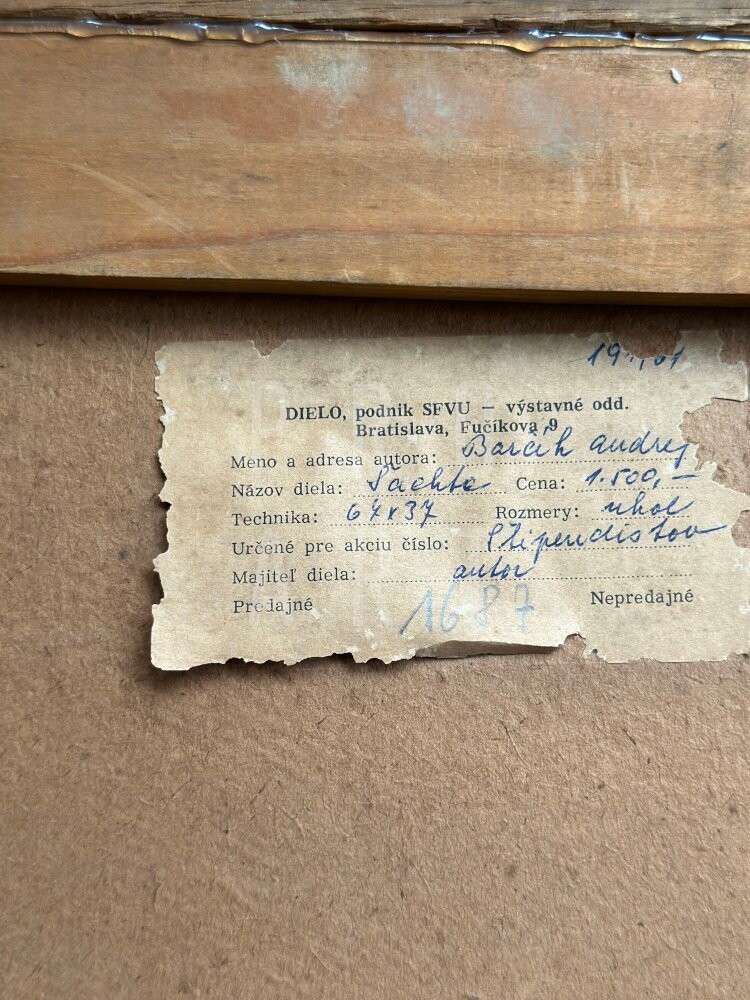 DIELO, podnik SFVU — výstavné odd.
Bratislava, Fučíkova 9
Meno a adresa autora: Barčík Andrej
Názov diela: Šachta Cena: 1.500,—
Technika: 64x37 Rozmery: uhol
Určené pre akciu číslo: Štipendistov
Majiteľ diela: autor
Predajné 1687 Nepredajné